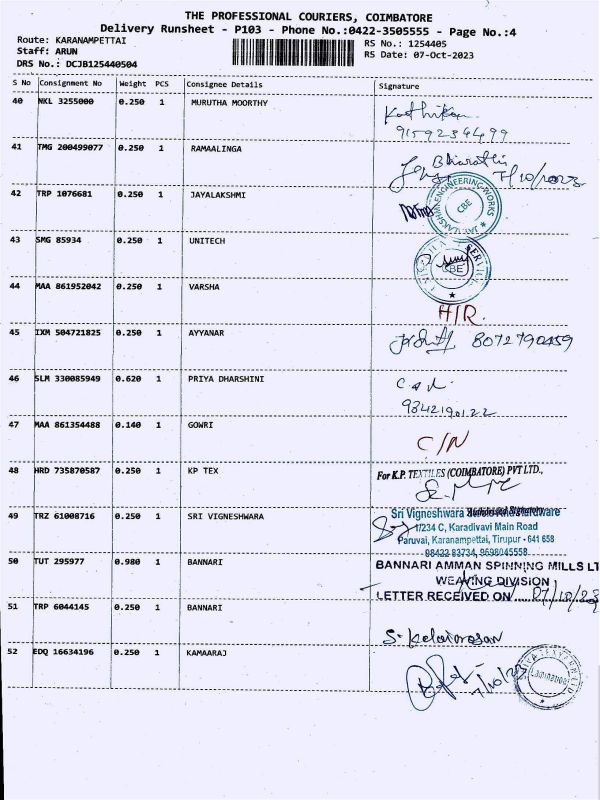 THE PROFESSIONAL COURIERS, COIMBATORE
Delivery Runsheet - P103 - Phone No.:0422-3505555 - Page No.:4
Route: KARANAMPETTAI
Staff: ARUN
DRS No.: DCJB125440504
RS No.: 1254405
RS Date: 07-Oct-2023
S No Consignment No Weight PCS Consignee Details Signature
40 NKL 3255000 0.250 1 MURUTHA MOORTHY
9159234499
41 TMG 200499077 0.250 1 RAMAALINGA
Bharathi
7/10/2023
42 TRP 1076681 0.250 1 JAYALAKSHMI
LAKSHMI ENGINEERING WORKS
CBE
43 SMG 85934 0.250 1 UNITECH
CBE
44 MAA 861952042 0.250 1 VARSHA
H/R.
45 IXM 504721825 0.250 1 AYYANAR
8072790459
46 SLM 330085949 0.620 1 PRIYA DHARSHINI
9342190122
47 MAA 861354488 0.140 1 GOWRI
C/N
48 HRD 735870587 0.250 1 KP TEX
For K.P. TEXTILES (COIMBATORE) PVT LTD.,
49 TRZ 61008716 0.250 1 SRI VIGNESHWARA
Sri Vigneshwara
1/234 C, Karadivavi Main Road
Paruvai, Karanampettai, Tirupur - 641 658
98422 83734, 9698045558
50 TUT 295977 0.980 1 BANNARI
BANNARI AMMAN SPINNING MILLS LT
WEAVING DIVISION
LETTER RECEIVED ON ..... 07/10/23
51 TRP 6044145 0.250 1 BANNARI
52 EDQ 16634196 0.250 1 KAMAARAJ
7/10/23